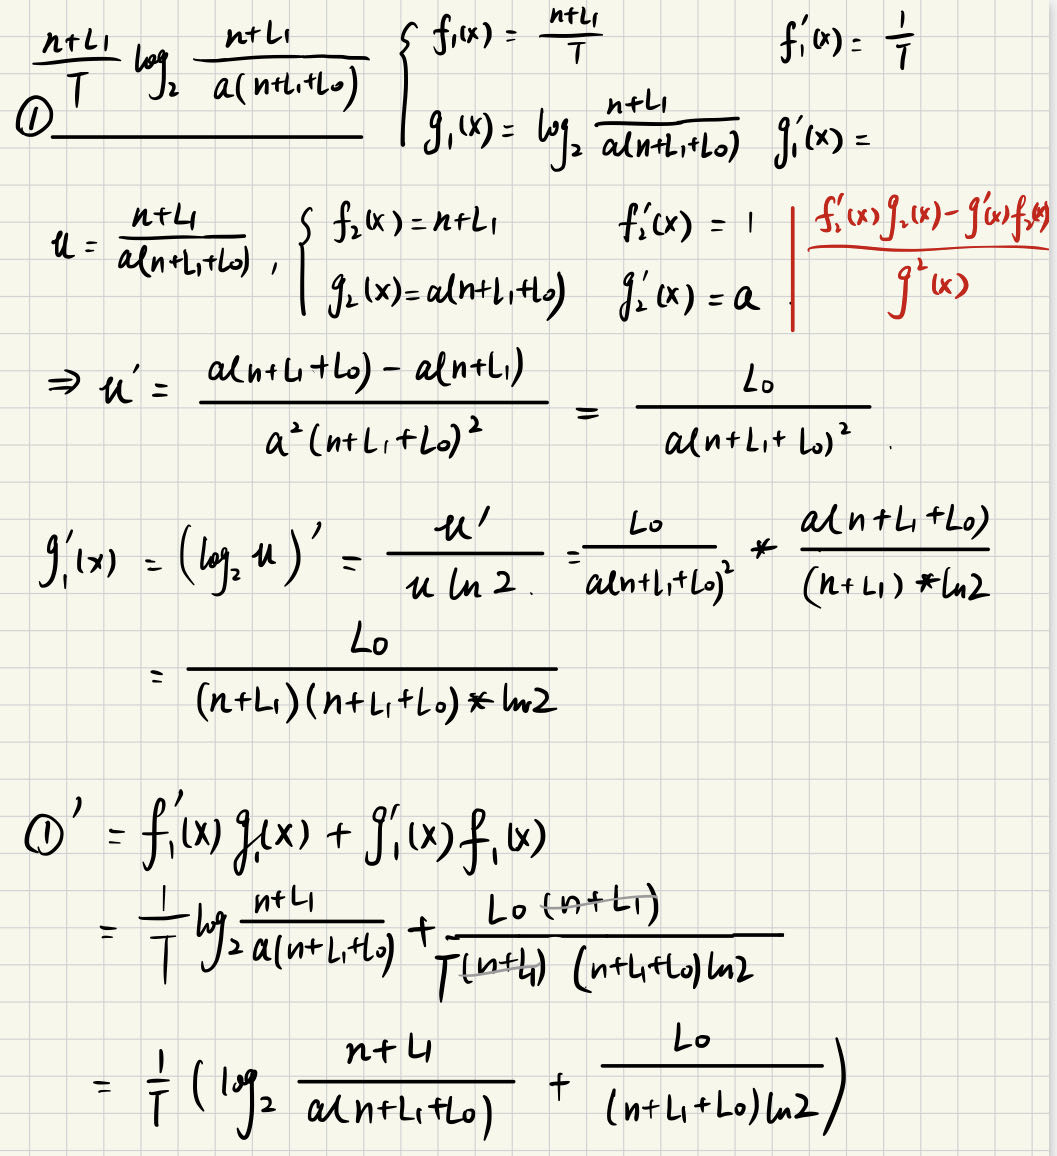 ① (n+L1)/T log₂ (n+L1)/(a(n+L1+L0)) { f₁(x) = (n+L1)/T f₁'(x) = 1/T
g₁(x) = log₂ (n+L1)/(a(n+L1+L0)) g₁'(x) =
u = (n+L1)/(a(n+L1+L0)) , { f₂(x) = n+L1 f₂'(x) = 1 | (f₂'(x)g₂(x) - g'(x)f₂(x))/(g²(x))
g₂(x) = a(n+L1+L0) g₂'(x) = a .
⇒ u' = (a(n+L1+L0) - a(n+L1))/(a²(n+L1+L0)²) = L0/(a(n+L1+L0)²) .
g₁'(x) = (log₂ u)' = u'/(u ln 2) . = L0/(a(n+L1+L0)²) * (a(n+L1+L0))/((n+L1) * ln2)
= L0/((n+L1)(n+L1+L0) * ln2)
①' = f₁'(x) g₁(x) + g₁'(x) f₁(x)
= 1/T log₂ (n+L1)/(a(n+L1+L0)) + (L0 (n+L1))/(T(n+L1) (n+L1+L0) ln2)
= 1/T ( log₂ (n+L1)/(a(n+L1+L0)) + L0/((n+L1+L0) ln2) )